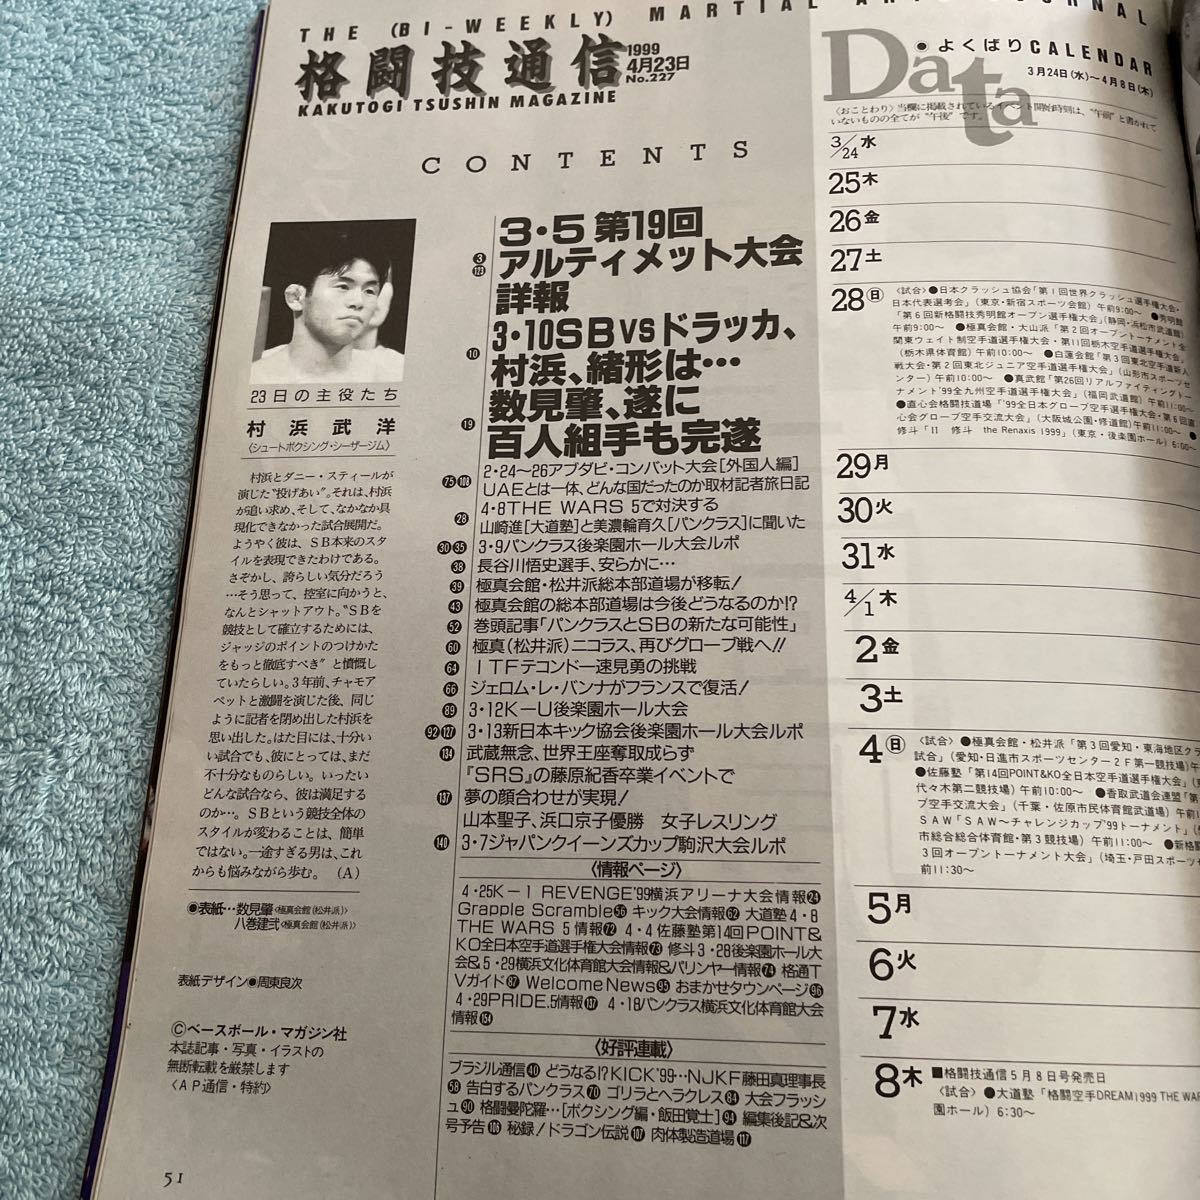 THE (BI-WEEKLY) MARTIAL
格闘技通信
1999
4月23日
No.227
KAKUTOGI TSUSHIN MAGAZINE
CONTENTS
23日の主役たち
村浜武洋
〈シュートボクシング・シーザージム〉
村浜とダニー・スティールが
演じた“投げあい”。それは、村浜
が追い求め、そして、なかなか具
現化できなかった試合展開だ。
ようやく彼は、SB本来のスタ
イルを表現できたわけである。
さぞかし、誇らしい気分だろう
…そう思って、控室に向かうと、
なんとシャットアウト。“SBを
競技として確立するためには、
ジャッジのポイントのつけかた
をもっと徹底すべき”と憤慨し
ていたらしい。3年前、チャモア
ペットと激闘を演じた後、同じ
ように記者を閉め出した村浜を
思い出した。はた目には、十分い
い試合でも、彼にとっては、まだ
不十分なものらしい。いったい
どんな試合なら、彼は満足する
のか…。SBという競技全体の
スタイルが変わることは、簡単
ではない。一途すぎる男は、これ
からも悩みながら歩む。(A)
●表紙…数見肇〈極真会館(松井派)〉
八巻建弐〈極真会館(松井派)〉
表紙デザイン●周東良次
©ベースボール・マガジン社
本誌記事・写真・イラストの
無断転載を厳禁します
〈AP通信・特約〉
51
3・5 第19回
アルティメット大会
詳報
3 123
3・10SBvsドラッカ、
村浜、緒形は…
10
数見肇、遂に
百人組手も完遂
19
2・24〜26アブダビ・コンバット大会[外国人編]
UAEとは一体、どんな国だったのか取材記者旅日記
4・8THE WARS 5で対決する
28 山崎進[大道塾]と美濃輪育久[パンクラス]に聞いた
30 35 3・9パンクラス後楽園ホール大会ルポ
38 長谷川悟史選手、安らかに…
39 極真会館・松井派総本部道場が移転!
43 極真会館の総本部道場は今後どうなるのか!?
52 巻頭記事「パンクラスとSBの新たな可能性」
60 極真(松井派)ニコラス、再びグローブ戦へ!!
64 ITFテコンドー速見勇の挑戦
66 ジェロム・レ・バンナがフランスで復活!
89 3・12K-U後楽園ホール大会
92 127 3・13新日本キック協会後楽園ホール大会ルポ
134 武蔵無念、世界王座奪取成らず
『SRS』の藤原紀香卒業イベントで
137 夢の顔合わせが実現!
山本聖子、浜口京子優勝 女子レスリング
140 3・7ジャパンクイーンズカップ駒沢大会ルポ
〈情報ページ〉
4・25K-1 REVENGE'99横浜アリーナ大会情報24
Grapple Scramble56 キック大会情報62 大道塾4・8
THE WARS 5情報72 4・4佐藤塾第14回POINT&
KO全日本空手道選手権大会情報73 修斗3・28後楽園ホール大
会&5・29横浜文化体育館大会情報&バリンヤー情報74 格通T
Vガイド87 Welcome News95 おまかせタウンページ96
4・29PRIDE.5情報 4・18パンクラス横浜文化体育館大会
情報
〈好評連載〉
ブラジル通信40 どうなる!?KICK'99…NJKF藤田真理事長
58 告白するパンクラス70 ゴリラとヘラクレス84 大会フラッシ
ュ90 格闘曼陀羅…[ボクシング編・飯田覚士]94 編集後記&次
号予告106 秘録!ドラゴン伝説107 肉体製造道場117
Data
●よくばりCALENDAR
3月24日(水)〜4月8日(木)
〈おことわり〉当欄に掲載されているイベント開始時刻は、“午前”と書かれて
いないものの全てが“午後”です。
3/24 水
25 木
26 金
27 土
28 (日)
〈試合〉●日本クラッシュ協会「第1回世界クラッシュ選手権大会・
日本代表選考会」(東京・新宿スポーツ会館)午前9:00〜 ●秀明館
「第6回新格闘技秀明館オープン選手権大会」(静岡・浜松市武道館)
午前9:00〜 ●極真会館・大山派「第2回オープントーナメント全
関東ウェイト制空手道選手権大会・第11回栃木空手道選手権大会」
(栃木県体育館)午前10:00〜 ●白蓮会館「第3回東北空手道新人
戦大会・第2回東北ジュニア空手道選手権大会」(山形市スポーツセ
ンター)午前10:00〜 ●真武館「第26回リアルファイティングトー
ナメント'99全九州空手道選手権大会」(福岡武道館)午前11:00〜
●直心会格闘技道場「'99全日本グローブ空手道選手権大会・第6回直
心会グローブ空手交流大会」(大阪城公園・修道館)午前11:00〜 ●
修斗「11 修斗 the Renaxis 1999」(東京・後楽園ホール)6:00〜
29 月
30 火
31 水
4/1 木
2 金
3 土
4 (日)
〈試合〉●極真会館・松井派「第3回愛知・東海地区クラ
試合」(愛知・日進市スポーツセンター2F第一競技場)午
●佐藤塾「第14回POINT&KO全日本空手道選手権大会」(東
代々木第二競技場)午前11:00〜 ●香取武道会連盟「第
プ空手交流大会」(千葉・佐原市民体育館武道場)午前
SAW「SAW〜チャレンジカップ'99トーナメント」(
市総合総合体育館・第3競技場)午前11:00〜 ●新格闘
3回オープントーナメント大会」(埼玉・戸田スポーツセ
前11:30〜
5 月
6 火
7 水
8 木
■格闘技通信5月8日号発売日
〈試合〉●大道塾「格闘空手DREAM1999 THE WAR
園ホール)6:30〜